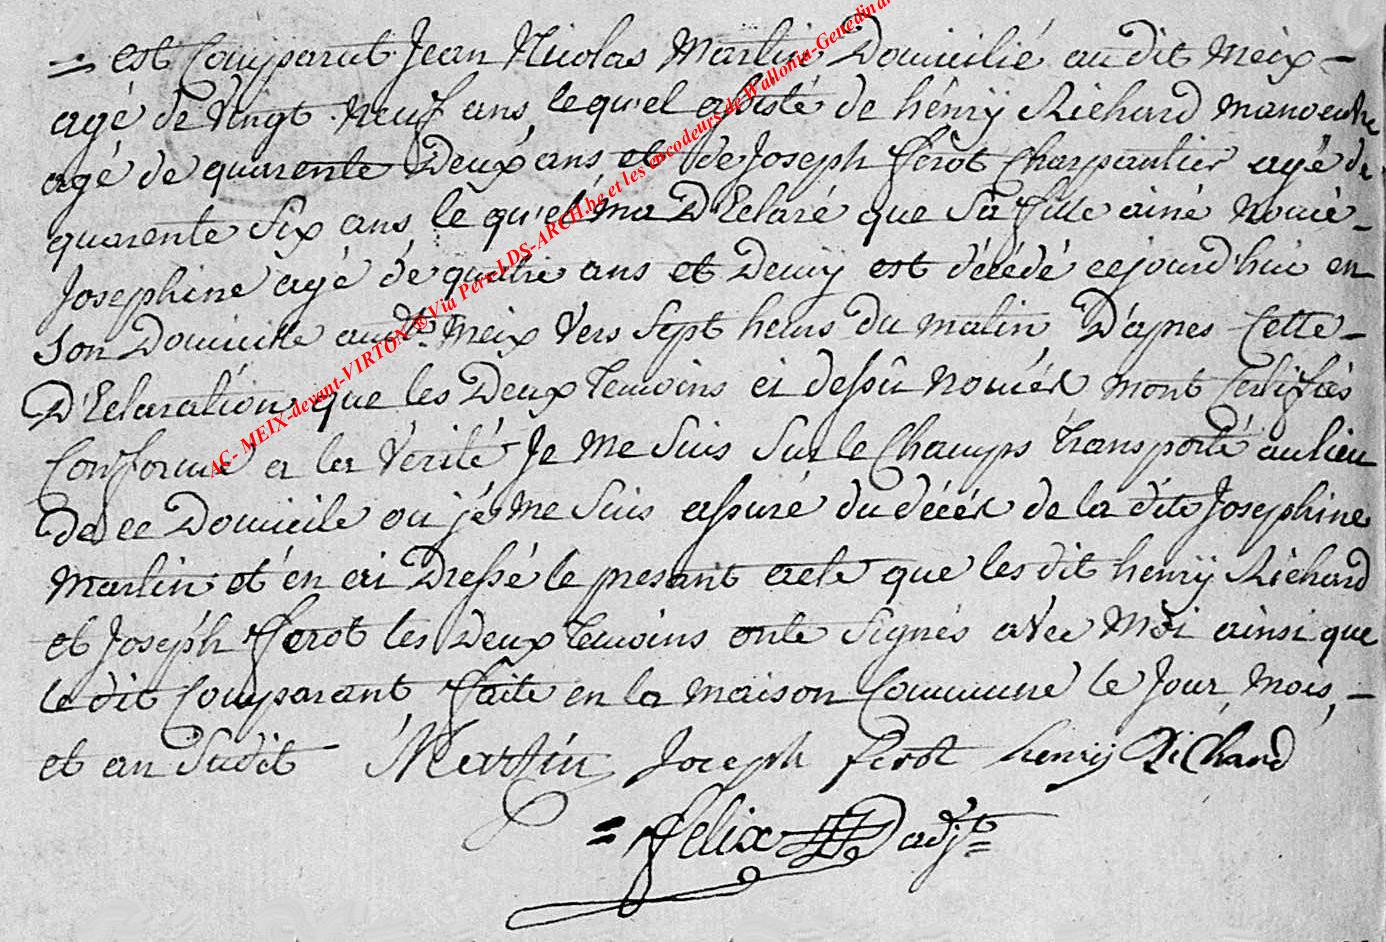 = est Comparut Jean Nicolas Marlin Domicilié au dit Meix -
agé de Vingt Neuf ans, lequ'el assisté de hénrÿ Richard manoeuvre
agé de quarente Deux ans et de Joseph fferot Charpantier agé de
quarente Six ans, lequ'el ma D'Eclaré que Sa fille ainé Nomé -
Josephine agé de quatre ans et Demÿ est décédé cejourd'hui en
Son Domicille audt. Meix Vers Sept heurs du matin, D'apres Cette -
D'Eclaration, que les Deux Temoins ci dessû Nomér mont Certifiés
Conforme a la Vérité Je Me Suis Sur le Champs Transporté au lieu
de ce Domicile ou jé Me Suis assuré du décér de la dite Josephine
Marlin et én ai Dressé le presant acte que les dit henrÿ Richard
et Joseph fferot les Deux Temoins onte Signés avec Moi ainsi que
le dit Comparant, ffaite en la maison Commune le Jour, Mois, -
et an Sudit Marlin Joceph ferot henrÿ RiChard
= ffelix adjt=
AC- MEIX-devant-VIRTON ® Via Pers-LDS-ARCH.be et les encodeurs de Wallonia-Genedinard